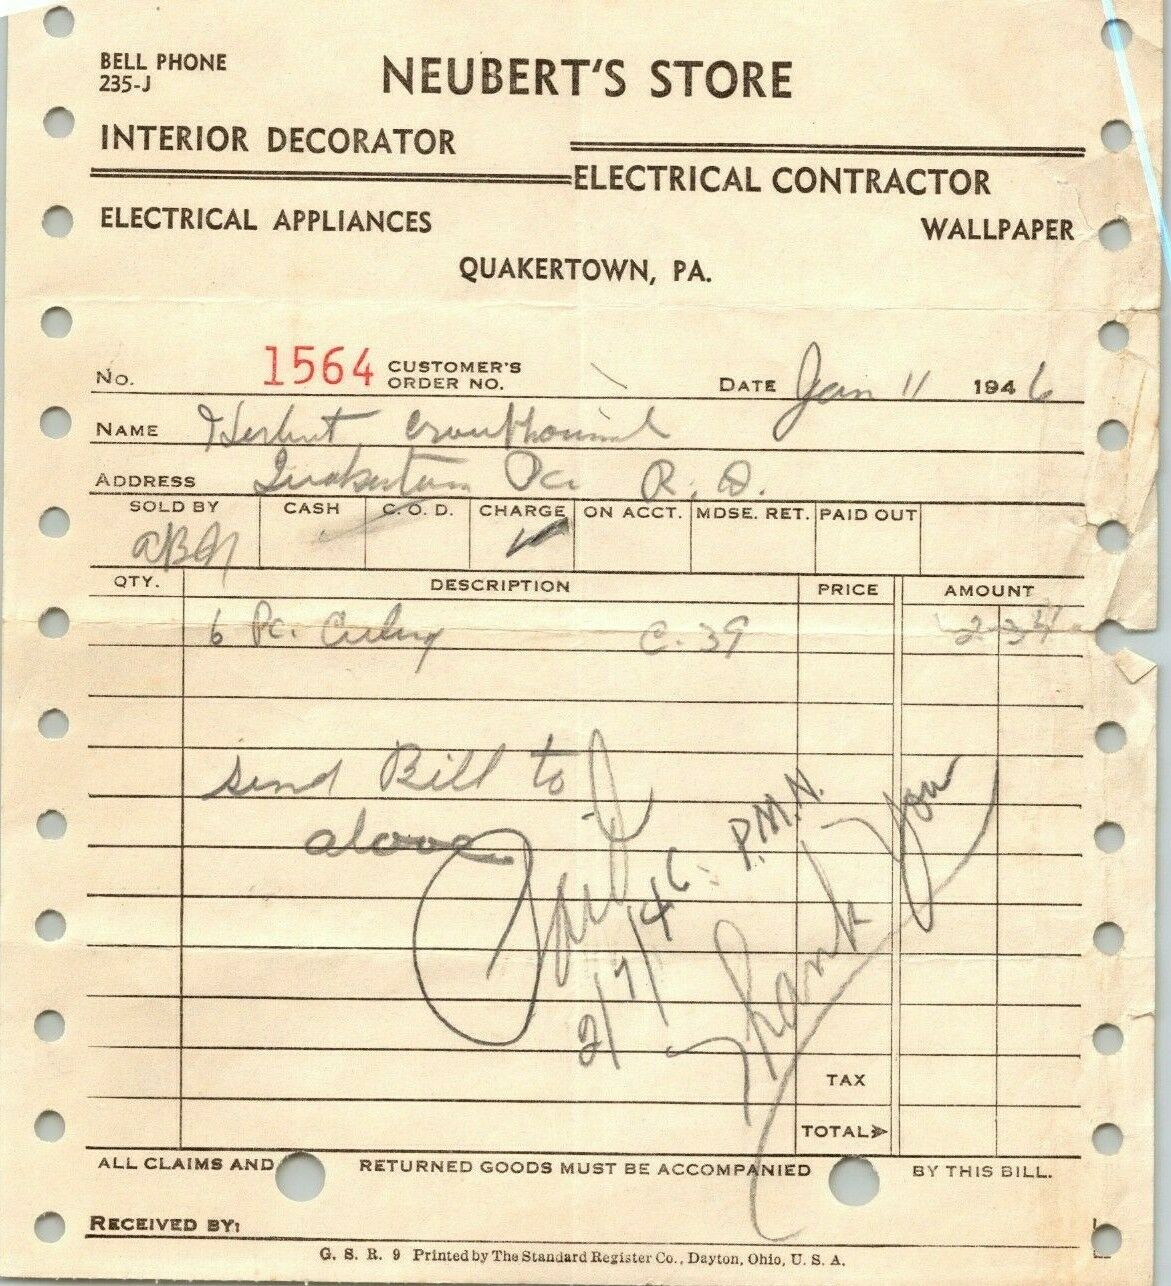 BELL PHONE
235-J
NEUBERT'S STORE
INTERIOR DECORATOR
ELECTRICAL CONTRACTOR
ELECTRICAL APPLIANCES
WALLPAPER
QUAKERTOWN, PA.
No. 1564 CUSTOMER'S ORDER NO. DATE Jan 11 1946
NAME Herbert
ADDRESS Quakertown Pa R. D.
SOLD BY CASH C. O. D. CHARGE ON ACCT. MDSE. RET. PAID OUT
QTY. DESCRIPTION PRICE AMOUNT
6 Pc. C. 39 2 34
Send Bill to
above
Paid
2/7/46 P.M.N.
Thank You
TAX
TOTAL
ALL CLAIMS AND RETURNED GOODS MUST BE ACCOMPANIED BY THIS BILL.
RECEIVED BY:
G. S. R. 9 Printed by The Standard Register Co., Dayton, Ohio, U. S. A.